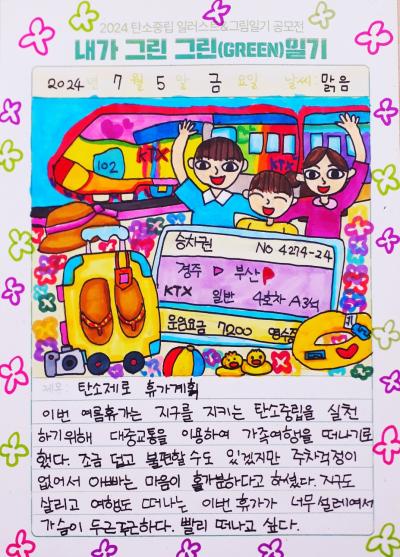 2024 탄소중립 일러스트&그림일기 공모전
내가 그린 그린(GREEN)일기
2024년 7월 5일 금요일 날씨: 맑음
102
KTX
KTX
승차권 No 4274-24
경주 부산
KTX 일반 4호차 A3석
운임요금 7200 영수증
제목: 탄소제로 휴가계획
이번 여름휴가는 지구를 지키는 탄소중립을 실천
하기위해 대중교통을 이용하여 가족여행을 떠나기로
했다. 조금 덥고 불편할 수도 있겠지만 주차걱정이
없어서 아빠는 마음이 홀가분하다고 하셨다. 지구도
살리고 여행도 떠나는 이번 휴가가 너무 설레여서
가슴이 두근두근하다. 빨리 떠나고 싶다.